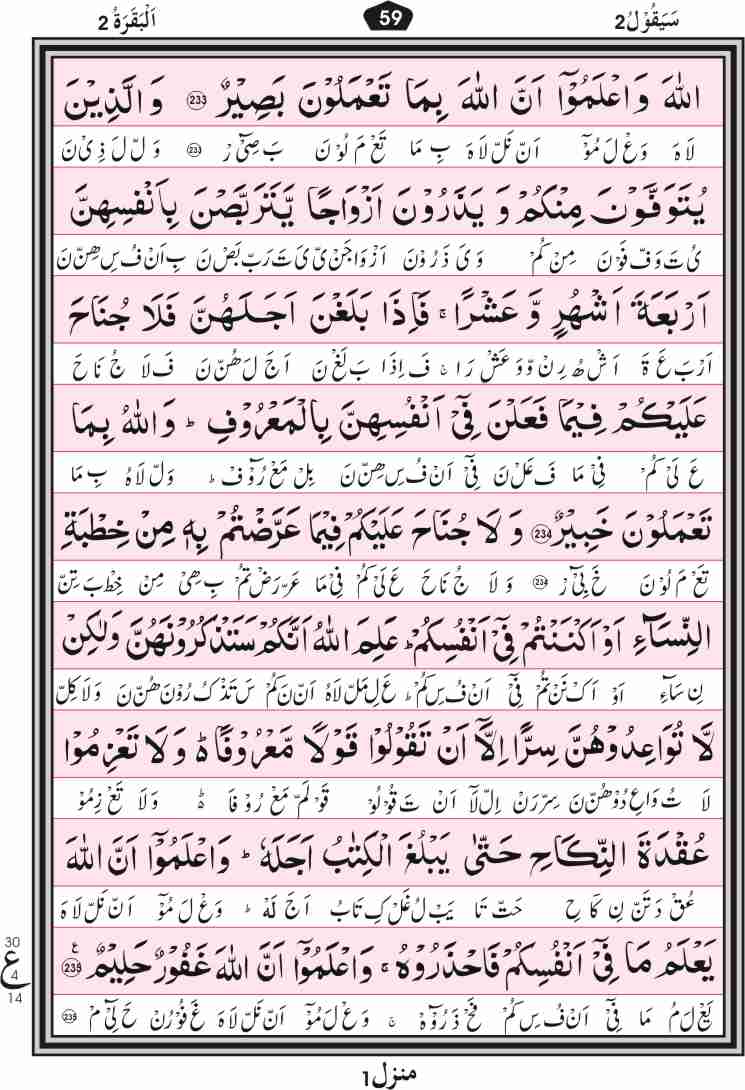 اَلْبَقَرَةُ 2
59
سَيَقُوْلُ 2
اللّٰهَ وَ اعْلَمُوْۤا اَنَّ اللّٰهَ بِمَا تَعْمَلُوْنَ بَصِيْرٌ ۝233 وَ الَّذِيْنَ
لَاهَ وَعْ لَ مُوْۤ اَنْ نَلْ لَا هَ بِ مَا تَعْ مَ لُوْ نَ بَ صِىْٓ رْ ۝233 وَ لْ لَ ذِىْ نَ
يُتَوَفَّوْنَ مِنْكُمْ وَ يَذَرُوْنَ اَزْوَاجًا يَّتَرَبَّصْنَ بِاَنْفُسِهِنَّ
ىُ تَ وَفْ فَوْ نَ مِنْ كُمْ وَ ىَ ذَ رُوْ نَ اَزْ وَا جَنْ ىْ ىَ تَ رَبْ بَصْ نَ بِ اَنْ فُ سِ هِنْ نَ
اَرْبَعَةَ اَشْهُرٍ وَّ عَشْرًا ۚ فَاِذَا بَلَغْنَ اَجَلَهُنَّ فَلَا جُنَاحَ
اَرْ بَ عَ ةَ اَشْ هُ رِنْ وْ وَ عَشْ رَا ۚ فَ اِذَا بَ لَغْ نَ اَ جَ لَ هُنْ نَ فَ لَا جُ نَا حَ
عَلَيْكُمْ فِيْمَا فَعَلْنَ فِىْۤ اَنْفُسِهِنَّ بِالْمَعْرُوْفِ ؕ وَ اللّٰهُ بِمَا
عَ لَىْ كُمْ فِىْ مَا فَ عَلْ نَ فِىْۤ اَنْ فُ سِ هِنْ نَ بِلْ مَعْ رُوْٓ فْ ؕ وَ لْ لَا هُ بِ مَا
تَعْمَلُوْنَ خَبِيْرٌ ۝234 وَ لَا جُنَاحَ عَلَيْكُمْ فِيْمَا عَرَّضْتُمْ بِهٖ مِنْ خِطْبَةِ
تَعْ مَ لُوْ نَ خَ بِىْٓ رْ ۝234 وَ لَا جُ نَا حَ عَ لَىْ كُمْ فِىْ مَا عَرْ رَضْ تُمْ بِ هِىْ مِنْ خِطْ بَ تِنْ
النِّسَآءِ اَوْ اَكْنَنْتُمْ فِىْۤ اَنْفُسِكُمْ ؕ عَلِمَ اللّٰهُ اَنَّكُمْ سَتَذْكُرُوْنَهُنَّ وَ لٰكِنْ
نِ سَآءِ اَوْ اَكْ نَنْ تُمْ فِىْۤ اَنْ فُ سِ كُمْ ؕ عَ لِ مَلْ لَا هُ اَنْ نَ كُمْ سَ تَذْ كُ رُوْ نَ هُنْ نَ وَ لَا كِلْ
لَّا تُوَاعِدُوْهُنَّ سِرًّا اِلَّاۤ اَنْ تَقُوْلُوْا قَوْلًا مَّعْرُوْفًا ؕ۬ وَ لَا تَعْزِمُوْا
لَا تُ وَا عِ دُوْ هُنْ نَ سِرْ رَنْ اِلْ لَاۤ اَنْ تَ قُوْ لُوْ قَوْ لَمْ مَعْ رُوْ فَا ؕ۬ وَ لَا تَعْ زِ مُوْ
عُقْدَةَ النِّكَاحِ حَتّٰى يَبْلُغَ الْكِتٰبُ اَجَلَهٗ ؕ وَ اعْلَمُوْۤا اَنَّ اللّٰهَ
عُقْ دَ تَنْ نِ كَا حِ حَتْ تَا يَبْ لُ غَلْ كِ تَا بُ اَ جَ لَهْ ؕ وَعْ لَ مُوْۤ اَنْ نَلْ لَا هَ
يَعْلَمُ مَا فِىْۤ اَنْفُسِكُمْ فَاحْذَرُوْهُ ۚ وَ اعْلَمُوْۤا اَنَّ اللّٰهَ غَفُوْرٌ حَلِيْمٌ ۝235 ع
يَعْ لَ مُ مَا فِىْۤ اَنْ فُ سِ كُمْ فَحْ ذَ رُوْٓ هْ ۚ وَعْ لَ مُوْۤ اَنْ نَلْ لَا هَ غَ فُوْ رُنْ حَ لِىْٓ مْ ۝235
30
ع
4
14
منزل 1